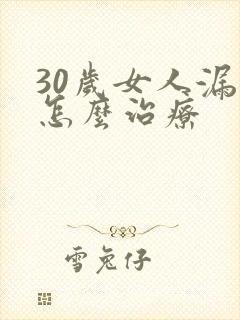 30歲女人漏
怎麼治療
雪兔仔